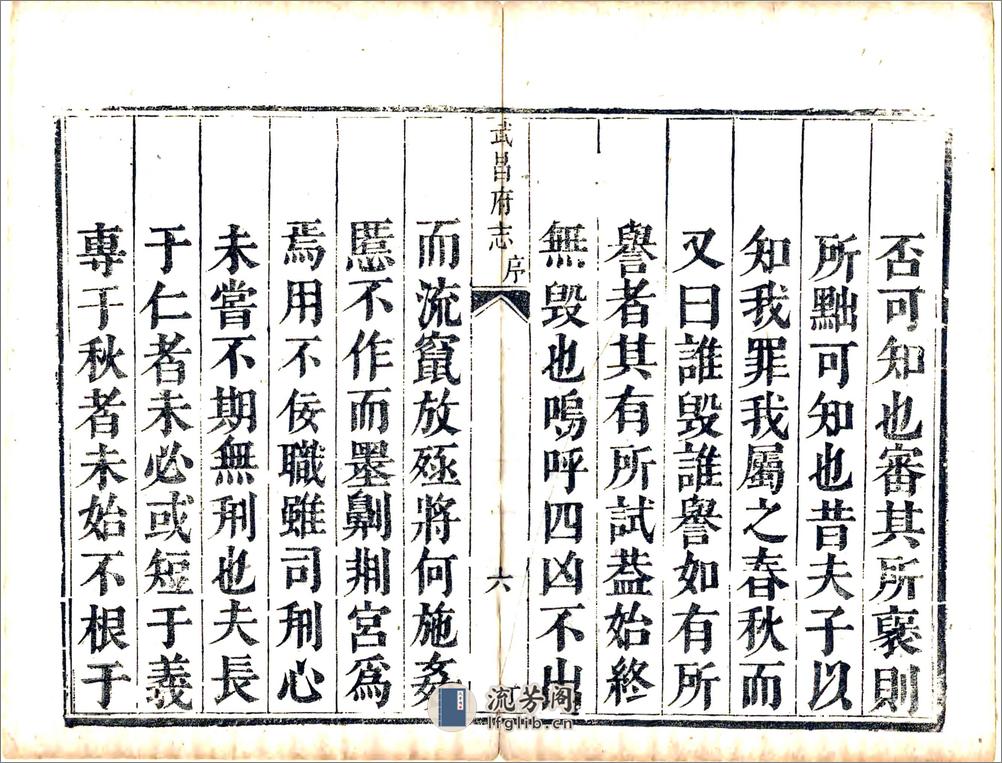 否可知也審其所褒則
所黜可知也昔夫子以
知我罪我屬之春秋而
又曰誰毁誰譽如有所
譽者其有所試葢始終
無毁也嗚呼四凶不出
武昌府志
序
六
而流竄放殛將何施姦
慝不作而墨劓剕宮爲
焉用不佞職雖司刑心
未嘗不期無刑也夫長
于仁者未必或短于義
專于秋者未始不根于
流芳阁
lfglib.cn